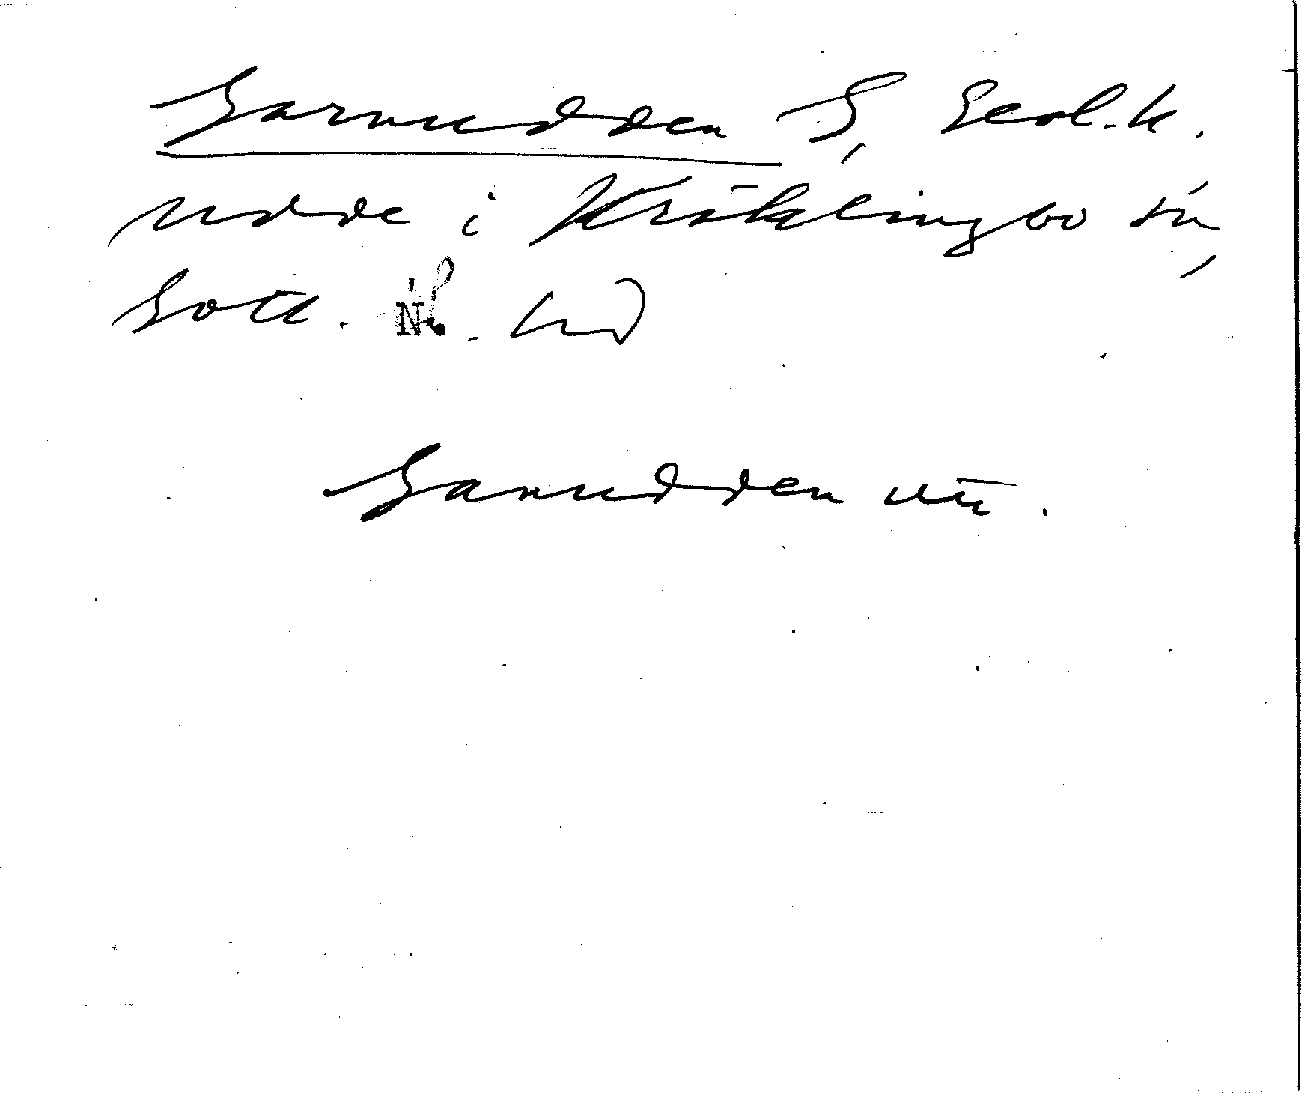 Garnudden S, Geol.k.
udde i Kräklingbo sn,
Gotl. N
Ganudden utt.